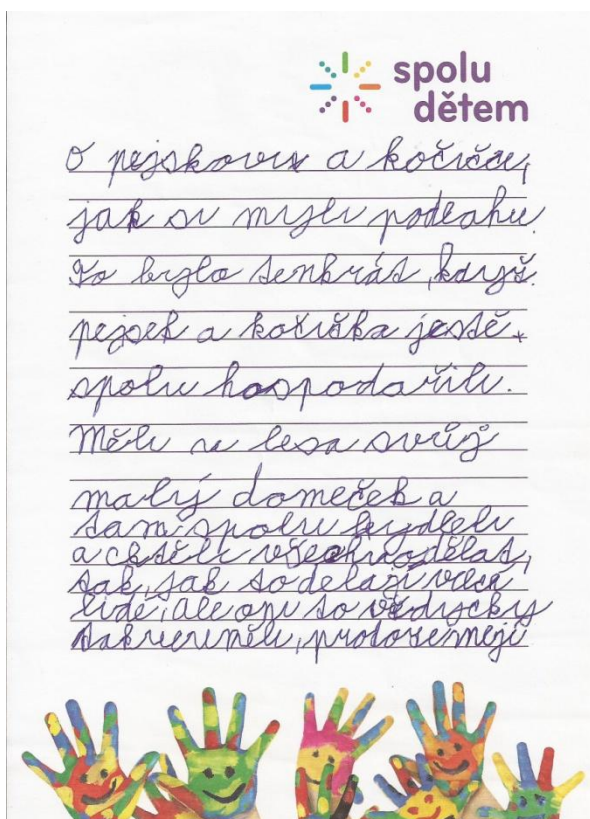 spolu
dětem
O pejskovi a kočičce,
jak si myli podlahu.
To bylo tenkrát, když
pejsek a kočička ještě
spolu hospodařili.
Měli u lesa svůj
malý domeček a
tam spolu bydleli
a chtěli všechno dělat,
tak, jak to delají velcí
lidé, ale oni to vždycky
tak neuměli, protože nemejí